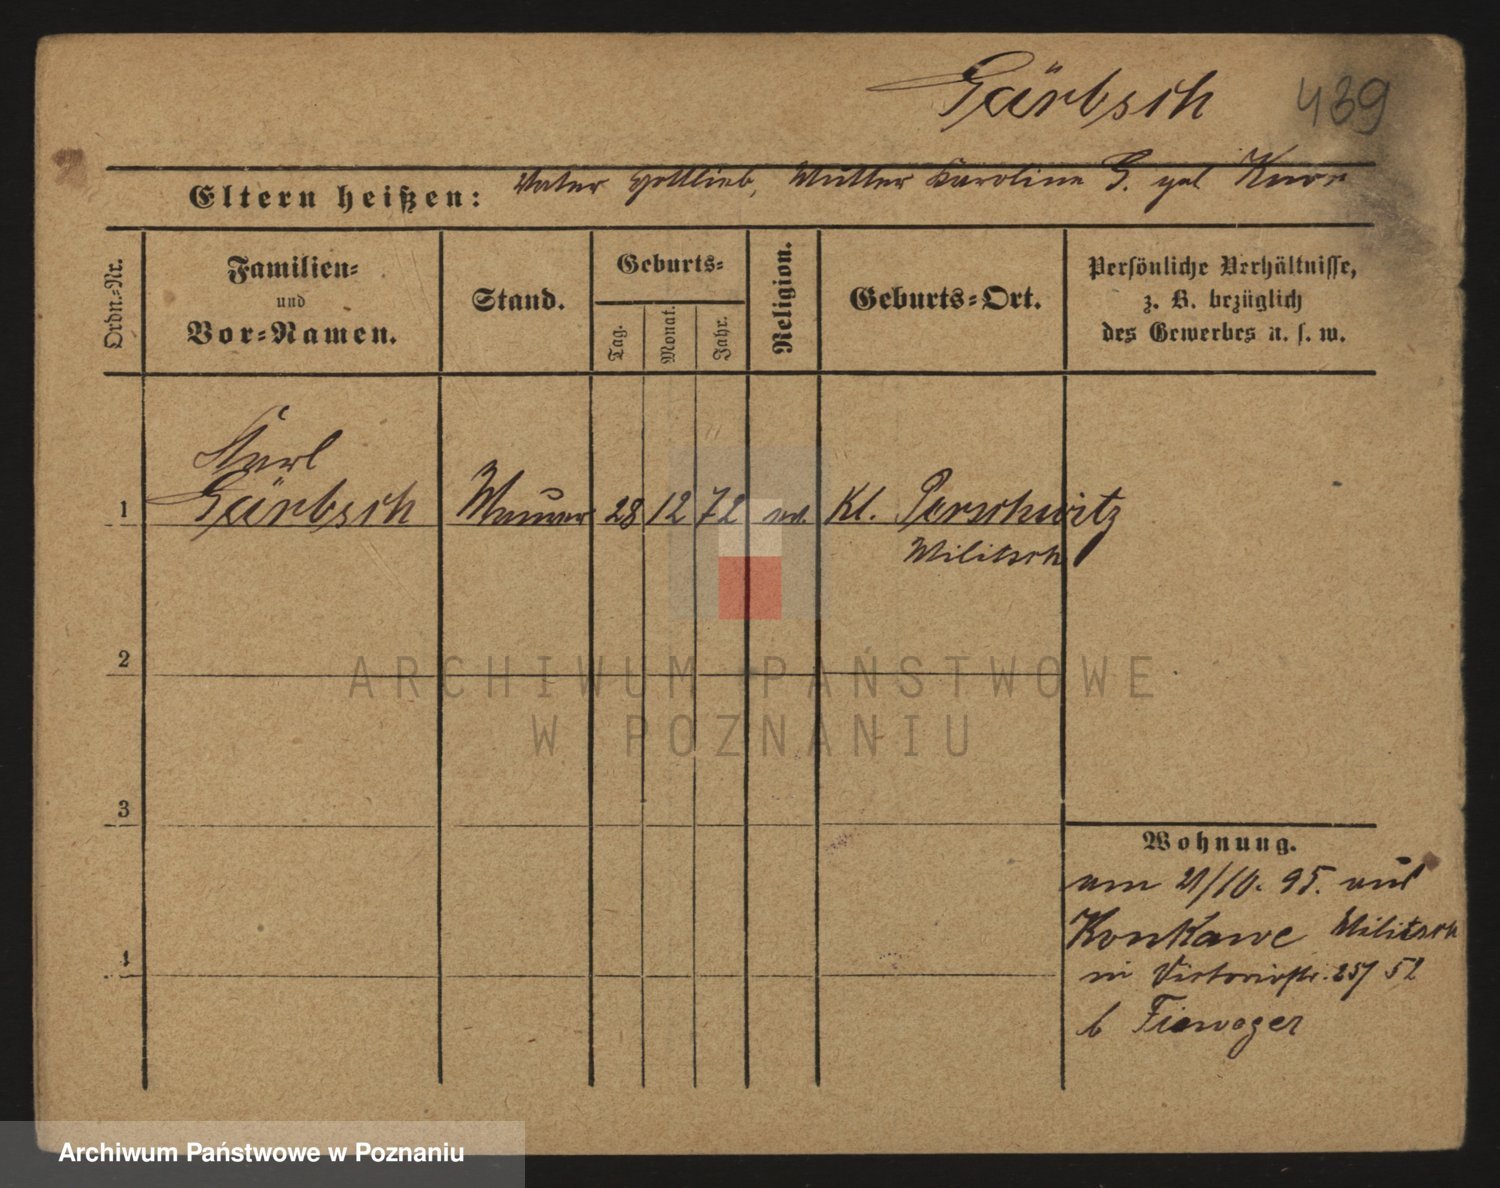 Gärbsch 439
Eltern heißen: Vater Gottlieb, Mutter Karoline G. geb Knorr
Ordn.-Nr.
Familien-
und
Vor-Namen.
Stand.
Geburts-
Tag.
Monat.
Jahr.
Religion.
Geburts-Ort.
Persönliche Verhältnisse,
z. B. bezüglich
des Gewerbes u. s. w.
Karl
1 Gärbsch Maurer 28 12 72 ev. Kl. Perschwitz
Militsch
2
ARCHIWUM PAŃSTWOWE
W POZNANIU
3
Wohnung.
am 21/10. 95. aus
Konkawe Militsch
4
in Victoriastr. 25/52
b
Archiwum Państwowe w Poznaniu